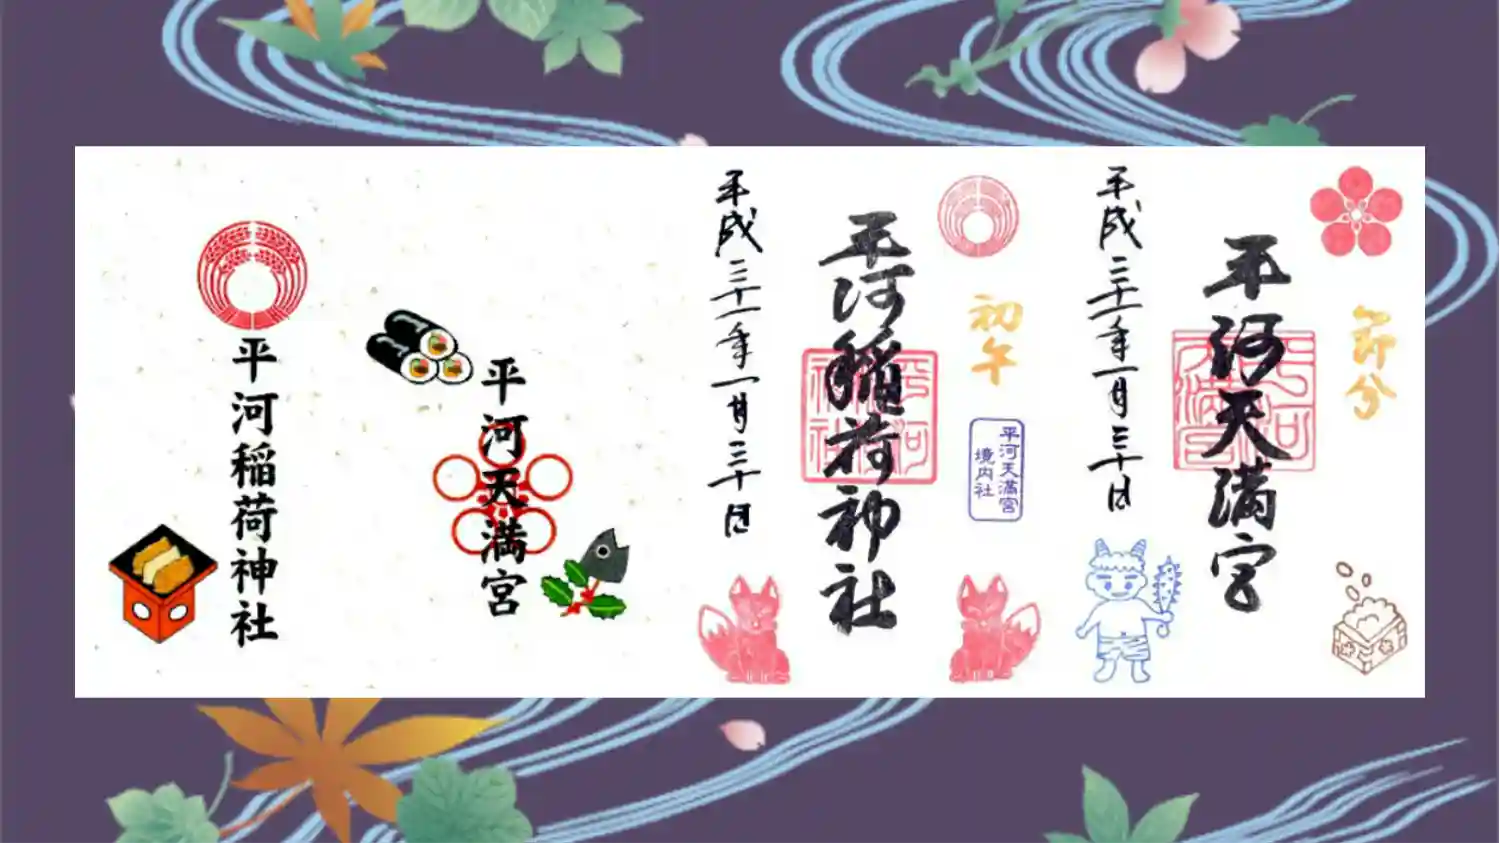 平河天満宮
節分
平成三十一年一月三十日
平河稲荷神社
初午
平河天満宮
境内社
平成三十一年一月三十日
平河天満宮
平河稲荷神社